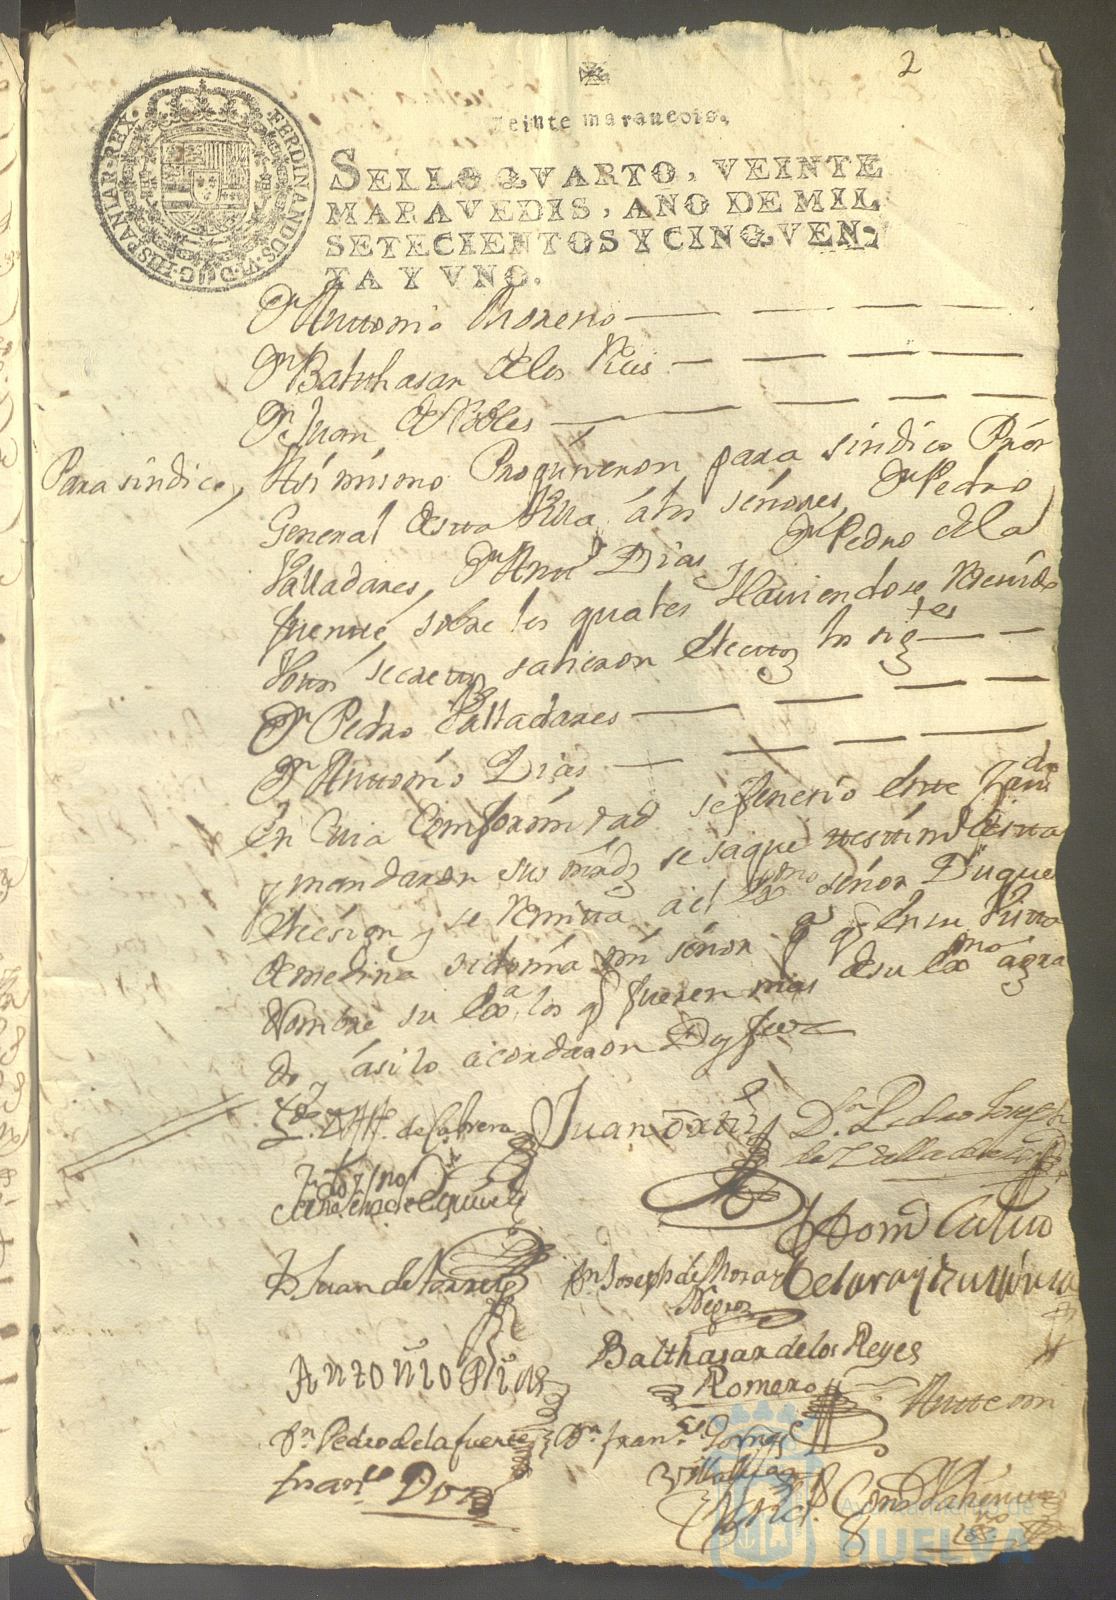 2
Veinte maraueois.
FERDINANDUS·VI·D·G·HISPANIAR·REX·
SELLO QVARTO, VEINTE
MARAVEDIS, AÑO DE MIL
SETECIENTOS Y CINQVEN-
TA Y VNO.
Dn Antonio Moreno
Dn Balthasar de los Reies
Dn Juan de Robles
Para sindico, Asi mismo Propusieron para sindico Pror
General desta Villa, a los señores, Dn Pedro
Valladares, Dn Antto Dias, y Dn Pedro de la
fuente, sobre los quales Haviendose
Votos secretos salieron electos los sigtes
Dn Pedro Valladares
Dn Antonio Dias
En Cuia Comformidad se fenecio este
y mandaron sus mrds se saque desta
elecsion y se Remita a el Exmo señor Duque
de medina sidonia mi señor pa q en su Vista
Nombre su Exa los q fueren mas de su Exmo agra
do, y asi lo acordaron Doy fee
de Cabrera
Juan
Dn Pedro Joseph
de Valladares
Dn Juan de
Dn Joseph de Mora y
Negro
Antonio Dias
Balthasar de los Reyes
Romero
Antte mi
Dn Pedro de la fuente
Dn Franco
Ayuntamiento de
HUELVA